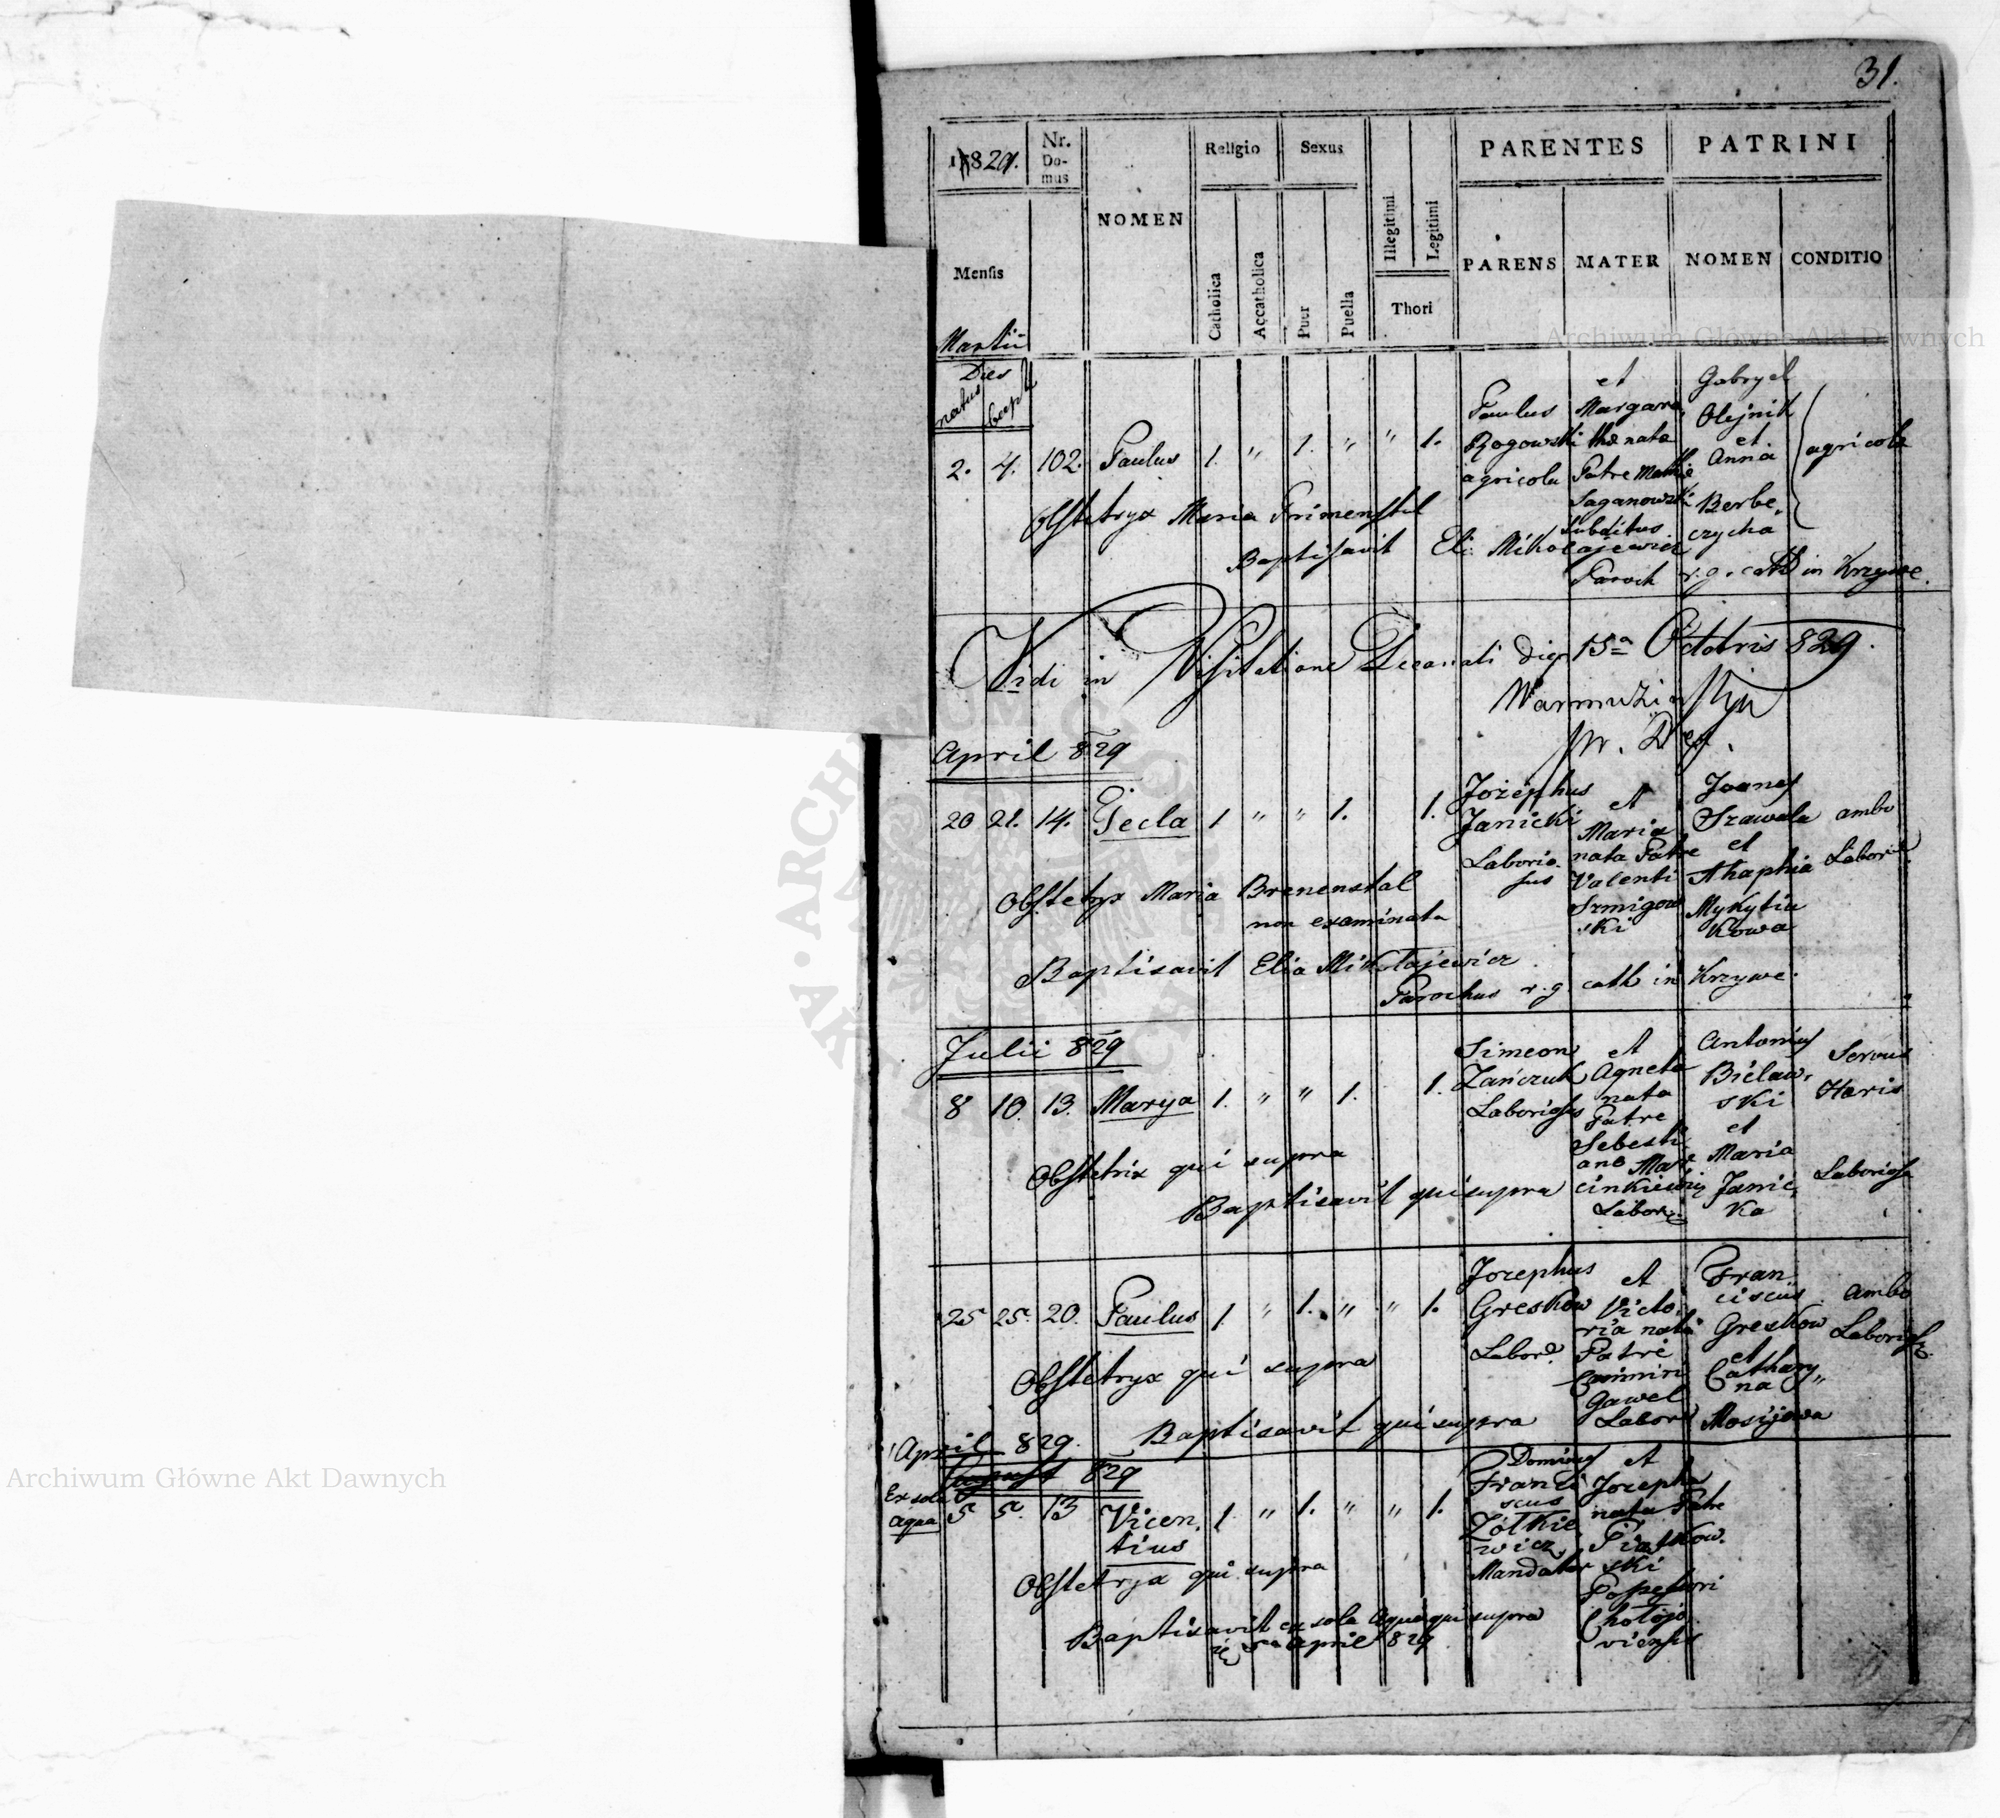 31.
1829.
Nr.
Do-
mus
NOMEN
Religio
Sexus
PARENTES
PATRINI
Mensis
Catholica
Accatholica
Puer
Puella
Illegitimi
Legitimi
Thori
PARENS
MATER
NOMEN
CONDITIO
Martii
Dies
natus
bapt
2. 4. 102. Paulus 1. " 1. " " 1.
Paulus
Rogowski
agricola
et
Margare,
tha nata
Patre
Saganowski
Subditus
Gabryel
Olejnik
et
Anna
Berbe,
czycha
agricolæ
Obstetryx Maria Primenstul
Baptisavit Eli: Mikołajewicz
Paroch r. g. cath in Krzywe.
Vidi in Visitatione Decanali die 15a Octobris 829.
April 829
20 21. 14. Tecla 1 " " 1. 1.
Jozephus
Janicki
Laborio.
sus
et
Maria
nata Patre
Valenti
Szmigow
ski
Joanes
Szawala
et
Ahaphia
Mykytiu
kowa
ambo
Labor
Obstetryx Maria Brenenstal
non examinata
Baptisavit Elia Mikołajewicz
Parochus r. g. cath in Krzywe.
Julii 829
8 10. 13. Marya 1. " " 1. 1.
Simeon
Zańczuk
Laboriosus
et
Agneta
nata
Patre
Sebesti
ano Mar
cinkiewicz
Labor
Antonius
Bielaw,
ski
et
Maria
Janic,
ka
Servus
Horis
Laboriosa
Obstetrix qui supra
Baptisavit qui supra
25 25. 20. Paulus 1. " 1. " " 1.
Jozephus
Greskow
Labor.
et
Victo,
ria nata
Patre
Casimiri
Gawel
Labor
Fran
ciscus
Greskow
et
Cathary,,
na
Mosijowa
ambo
Laborios
Obstetryx qui supra
Baptisavit qui supra
April 829.
August 829
Ex sola
aqua
5 5. 13 Vicen,
tius 1. " 1. " " 1.
Dominus
Franci
scus
Zółkie
wicz,
Mandator
et
Jozepha
nata Patre
Piątkow.
ski
Possessori
Chołojo
viensis
Obstetryx qui supra
Baptisavit ex sola Aqua qui supra
5a April 829
Archiwum Główne Akt Dawnych
Archiwum Główne Akt Dawnych